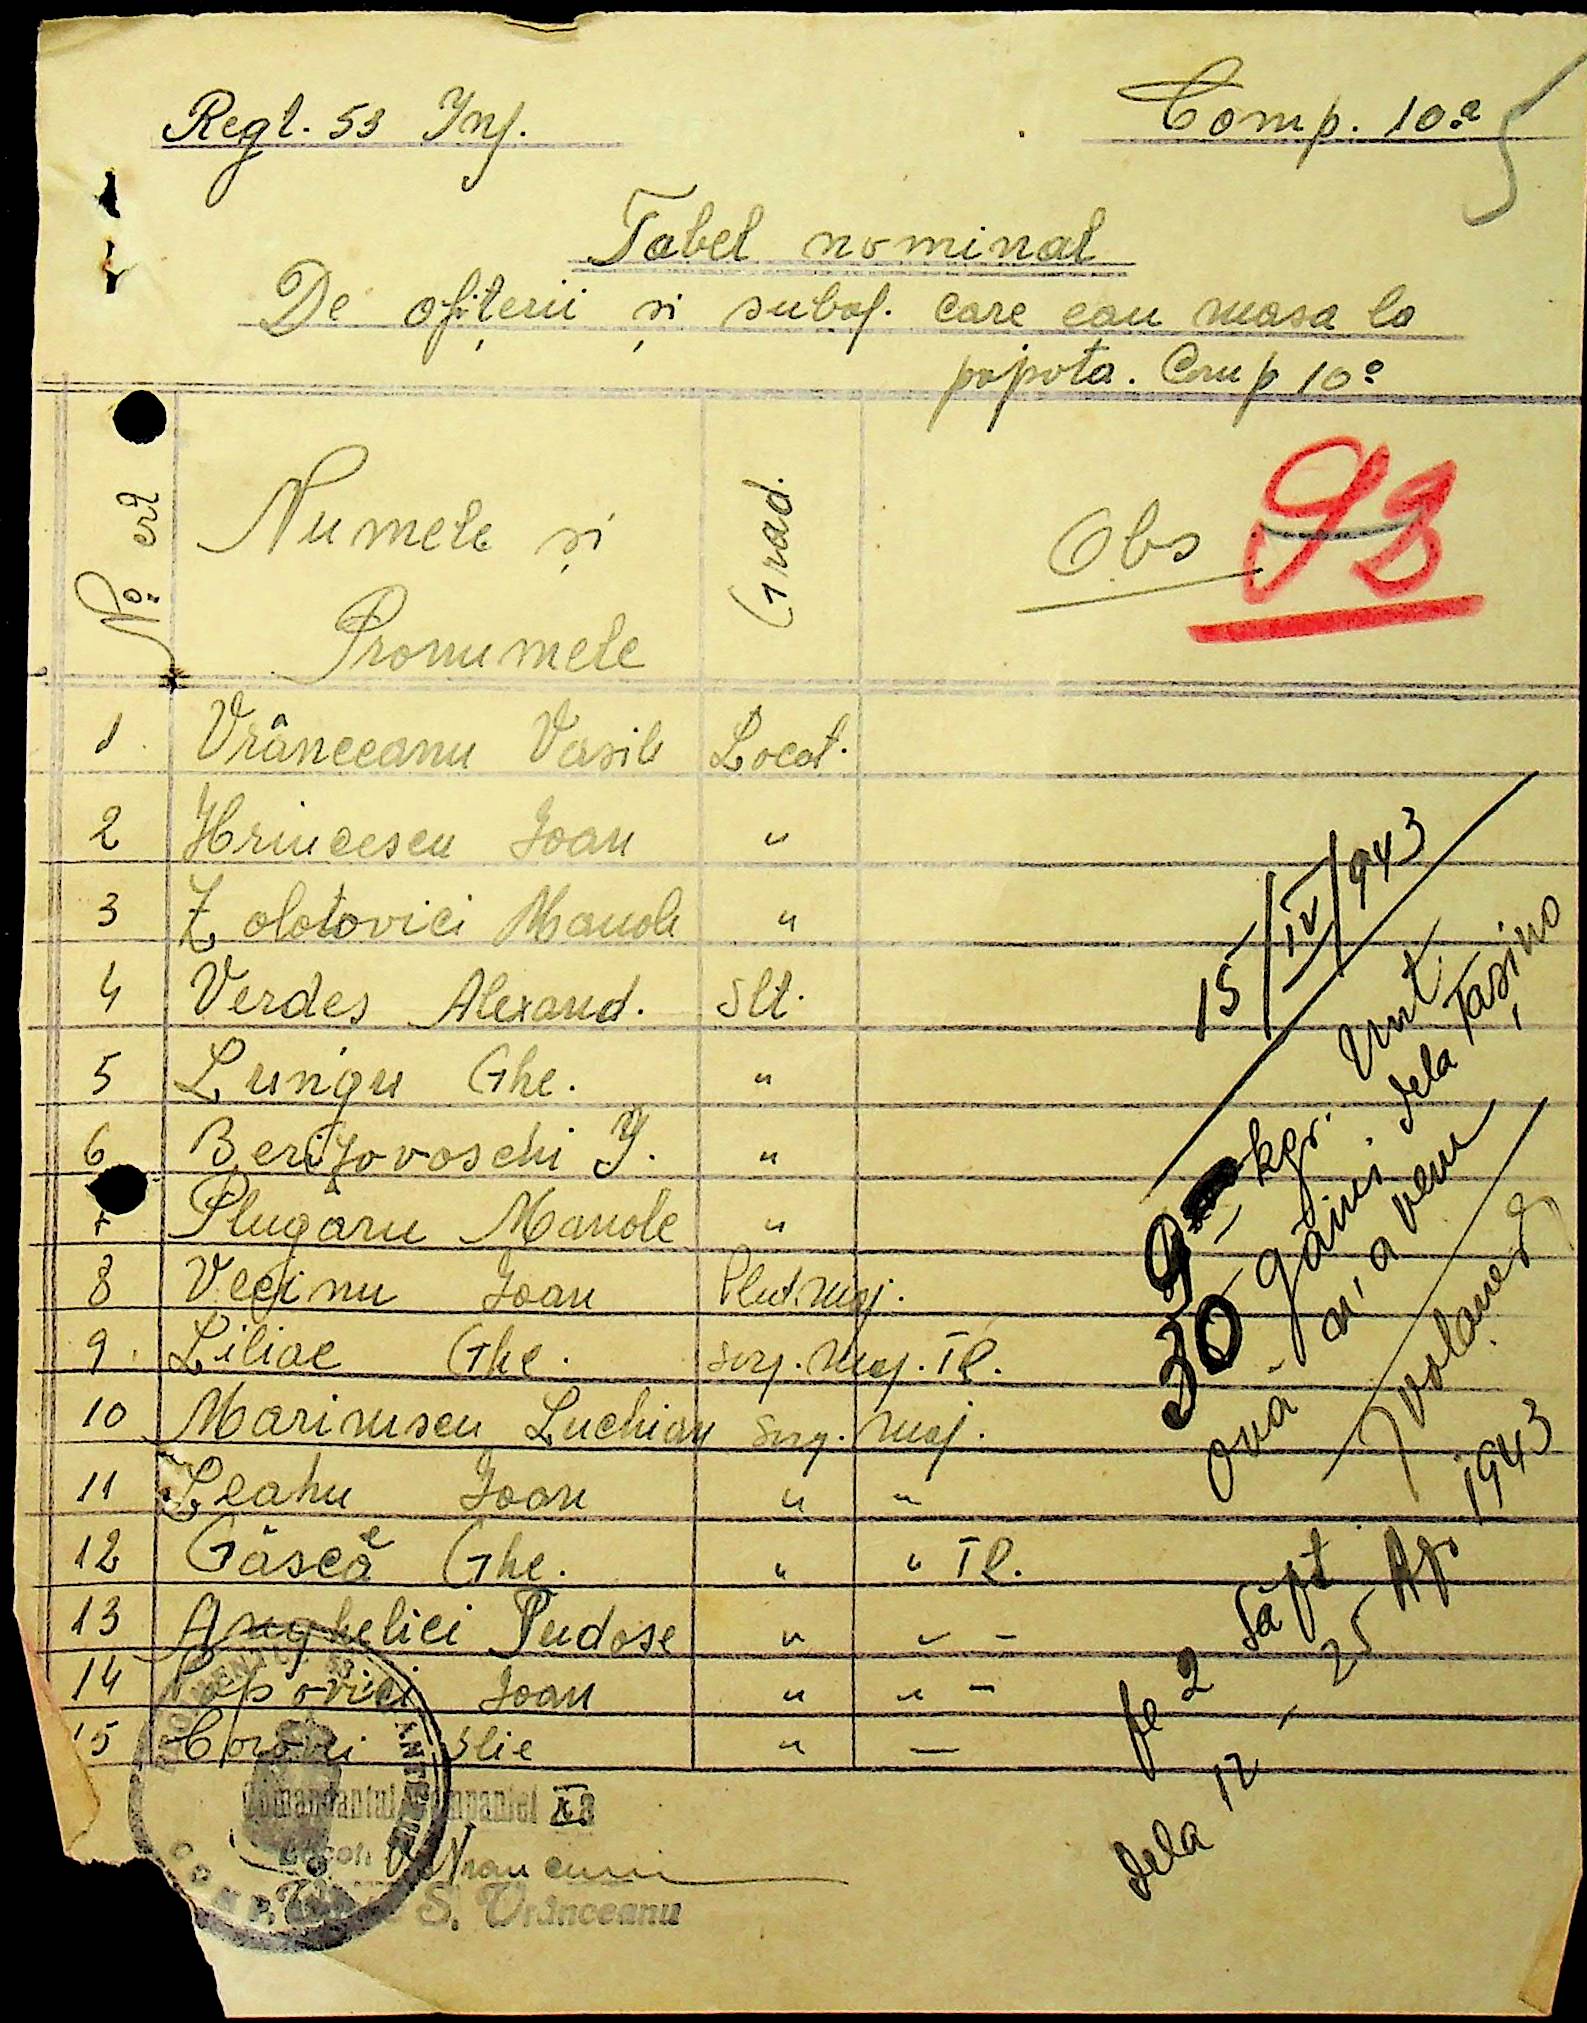 Regt. 53 Inf.
Comp. 10ª
Tabel nominal
De ofițerii și subof. care eau masa la
popota. Comp 10ª
Nº crt
Numele și
Pronumele
Grad.
Obs
93
1 Vrânceanu Vasile Locot.
2 Hrincescu Ioan "
3 Zolotovici Manole "
4 Verdes Alexand. Slt.
5 Lungu Ghe. "
6 "
7 Plugaru Manole "
8 Vecinu Ioan Plut. Maj.
9 Liliac Ghe. Serg. Maj. TR.
10 Marinescu Luchian Serg. Maj.
11 Leahu Ioan " "
12 Gâscă Ghe. " " TR.
13 Anghelici Tudose " " -
14 Popovici Ioan " " -
15 Ilie " —
15/IV/943
9 kgr. Unt
30 găini. dela Tașino
Ouă - ai, a veni
pe 2 săpt
dela 12 - 25 Ap. 1943
Comandantul Companiei X a
Locot.
S. Vrânceanu